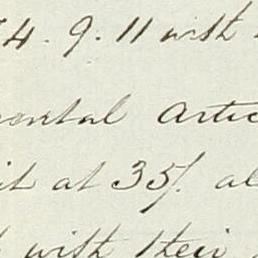 4. 9. 11 with
ental Artic
it at 35/. al
with their